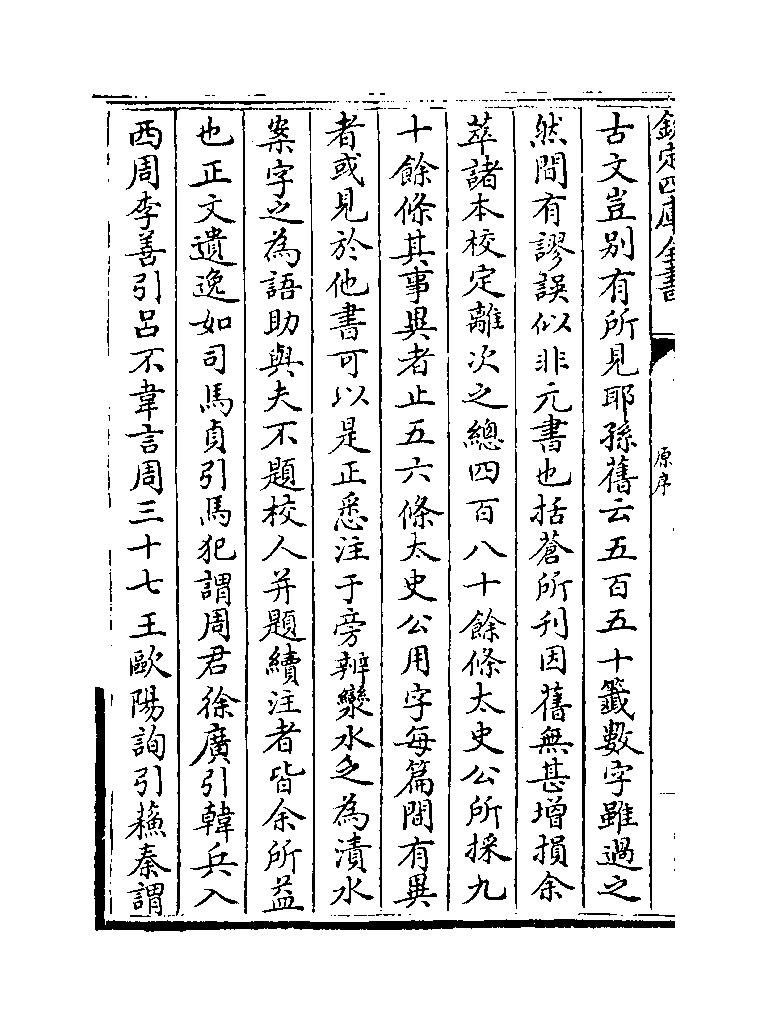 欽定四庫全書
原序
古文豈别有所見耶孫舊云五百五十籤數字雖過之
然間有謬誤似非元書也括蒼所刋因舊無甚增損余
萃諸本校定離次之總四百八十餘條太史公所採九
十餘條其事異者止五六條太史公用字每篇間有異
者或見於他書可以是正悉注于旁辨㶟水之為漬水
案字之為語助與夫不題校人并題續注者皆余所益
也正文遺逸如司馬貞引馬犯謂周君徐廣引韓兵入
西周李善引吕不韋言周三十七王歐陽詢引蘓秦謂